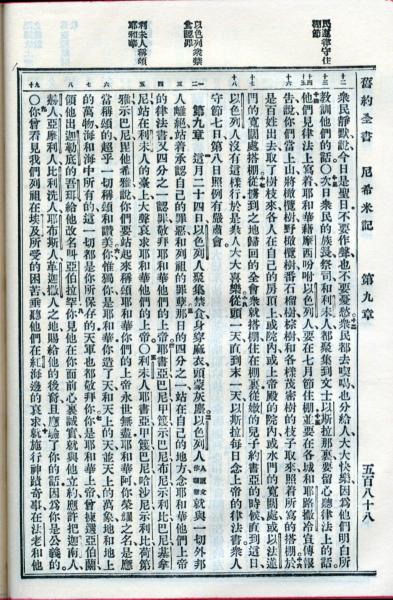 舊約全書 尼希米記 第九章 五百八十八
民遵律守住
棚節
以色列衆禁
食認罪
利未人稱頌
耶和華
衆民靜默說今日是聖日不要作聲也不要憂愁衆民都去喫喝也分給人大大快樂因爲他們明白所
教訓他們的話○次日衆民的族長祭司和利未人都聚集到文士以斯拉那裏要留心聽律法上的話
他們見律法上寫着耶和華藉摩西吩咐以色列人要在七月節住棚並要在各城和耶路撒冷宣傳報
告說你們當上山將橄欖樹野橄欖樹番石榴樹棕樹和各樣茂密樹的枝子取來照着所寫的搭棚於
是百姓出去取了樹枝來各人在自己的房頂上或院內或上帝殿的院內或水門的寬闊處或以法蓮
門的寬闊處搭棚從擄到之地歸回的全會衆就搭棚住在棚裏從嫩的兒子約書亞的時候直到這日
以色列人沒有這樣行於是衆人大大喜樂從頭一天直到末一天以斯拉每日念上帝的律法書衆人
守節七日第八日照例有嚴肅會
第九章 這月二十四日以色列人聚集禁食身穿麻衣頭蒙灰塵以色列人就與一切外邦
人離絕站着承認自己的罪惡和列祖的罪孽那日的四分之一站在自己的地方念耶和華他們上帝
的律法書又四分之一認罪敬拜耶和華他們的上帝耶書亞巴尼甲篾示巴尼布尼示利比巴尼基拿
尼站在利未人的臺上大聲哀求耶和華他們的上帝○利未人耶書亞甲篾巴尼哈沙尼示利比荷第
雅示巴尼毘他希雅說你們要站起來稱頌耶和華你們的上帝永世無盡耶和華阿你榮耀之名是應
當稱頌的超乎一切稱頌和讚美你惟獨你是耶和華你造了天和天上的天並天上的萬象地和地上
的萬物海和海中所有的這一切都是你所保存的天軍也都敬拜你你是耶和華上帝曾揀選亞伯蘭
領他出迦勒底的吾珥給他改名叫亞伯拉罕你見他在你面前心裏誠實就與他立約應許把迦南人
赫人亞摩利人比利洗人耶布斯人革迦撒人之地賜給他的後裔且應驗了你的話因爲你是公義的
○你曾看見我們列祖在埃及所受的困苦垂聽他們在紅海邊的哀求就施行神蹟奇事在法老和他